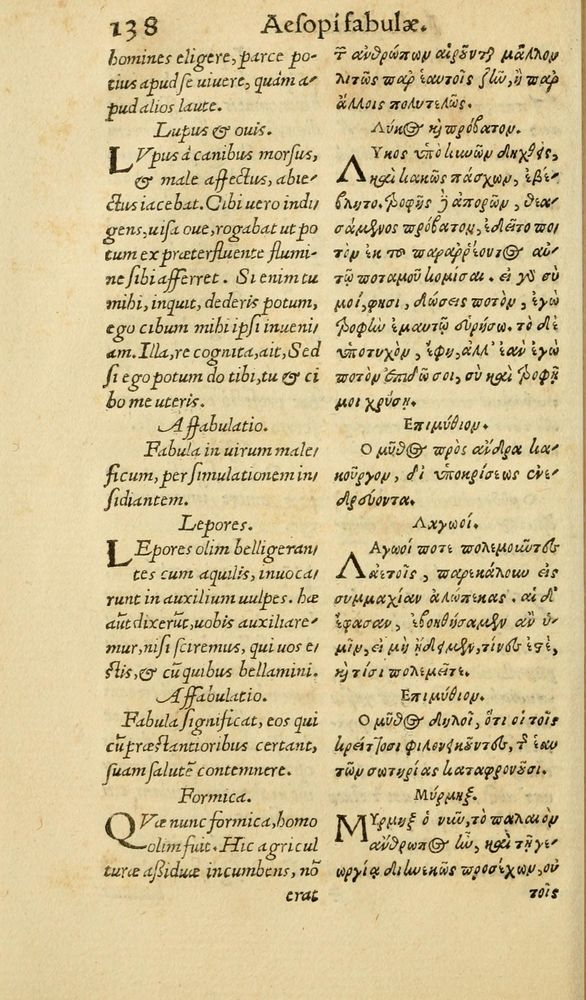 138 Aesopi fabulæ.
homines eligere, parce po-
tius apud se uiuere, quàm a-
pud alios laute.
Lupus & ouis.
LVpus à canibus morsus,
& male affectus, abie-
ctus iacebat. Cibi uero indi
gens, uisa oue, rogabat ut po
tum ex præterfluente flumi-
ne sibi afferret. Si enim tu
mihi, inquit, dederis potum,
ego cibum mihi ipsi inueni
am. Illa, re cognita, ait, Sed
si ego potum do tibi, tu & ci
bo me uteris.
Affabulatio.
Fabula in uirum male
ficum, per simulationem in
sidiantem.
Lepores.
LEpores olim belligeran
tes cum aquilis, inuoca
runt in auxilium uulpes. hæ
aūt dixerūt, uobis auxiliare
mur, nisi sciremus, qui uos e
stis, & cū quibus bellamini.
Affabulatio.
Fabula significat, eos qui
cū præstantioribus certant,
suam salutē contemnere.
Formica.
QVæ nunc formica, homo
olim fuit. Hic agricul
turæ aßiduæ incumbens, nō
erat
τῶν ἀνθρώπων αἱροῦνται μᾶλλον
λιτῶς παρ' ἑαυτοῖς ζῆν, ἢ παρ'
ἄλλοις πολυτελῶς.
Λύκος καὶ πρόβατον.
ΛΥκος ὑπὸ κυνῶν δηχθεὶς,
καὶ κακῶς πάσχων, ἐβέ-
βλητο. τροφῆς δὲ ἀπορῶν, θεα-
σάμενος πρόβατον, ἐδεῖτο πο-
τὸν ἐκ τοῦ παραῤῥέοντος αὐ-
τῷ ποταμοῦ κομίσαι. εἰ γὰρ σύ
μοι, φησὶ, δώσεις ποτὸν, ἐγὼ
τροφὴν ἐμαυτῷ εὑρήσω. τὸ δὲ
ὑποτυχὸν, ἔφη, ἀλλ' ἐὰν ἐγὼ
ποτὸν ἐπιδῶ σοι, σὺ καὶ τροφῇ
μοι χρήσῃ.
Ἐπιμύθιον.
Ὁ μῦθος πρὸς ἄνδρα κα-
κοῦργον, δι' ὑποκρίσεως ἐνε-
δρεύοντα.
Λαγωοί.
ΛΑγωοί ποτε πολεμοῦντες
ἀετοῖς, παρεκάλουν εἰς
συμμαχίαν ἀλώπεκας. αἱ δὲ
ἔφασαν, ἐβοηθήσαμεν ἂν ὑ-
μῖν, εἰ μὴ ᾔδειμεν, τίνες ἐστὲ,
καὶ τίσι πολεμεῖτε.
Ἐπιμύθιον.
Ὁ μῦθος δηλοῖ, ὅτι οἱ τοῖς
κρείττοσι φιλονεικοῦντες, τῆς ἑαυ
τῶν σωτηρίας καταφρονοῦσι.
Μύρμηξ.
ΜΥρμηξ ὁ νῦν, τὸ παλαιὸν
ἄνθρωπος ἦν, καὶ τῇ γε-
ωργίᾳ διηνεκῶς προσέχων, οὐ
τοῖς